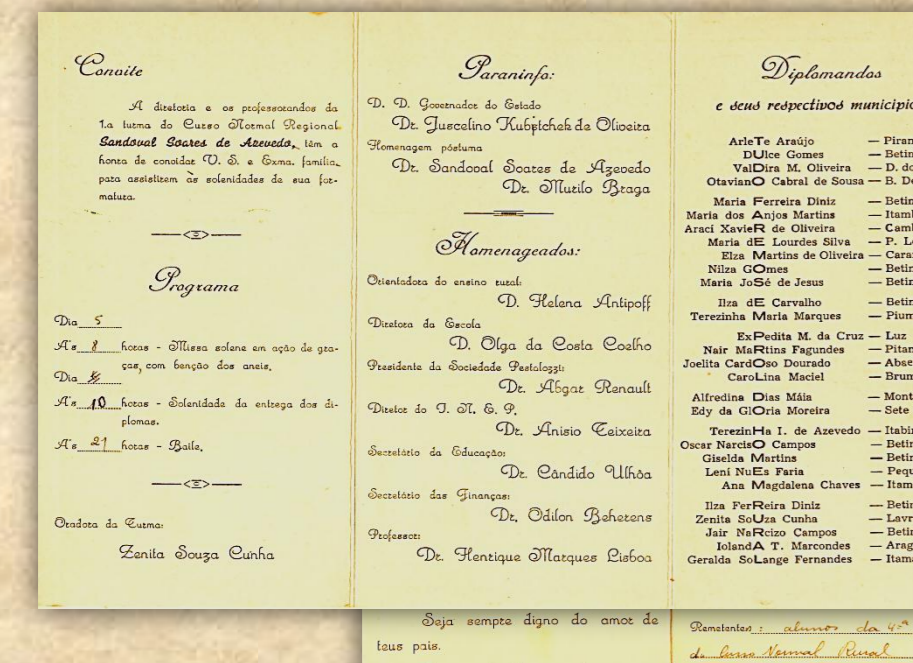 Convite
A diretoria e os professorandos da
1.a turma do Curso Normal Regional
Sandoval Soares de Azevedo, têm a
honra de convidar V. S. e Exma. familia,
para assistirem às solenidades de sua for-
matura.
Programa
Dia 5
A's 8 horas - Missa solene em ação de gra-
ças, com benção dos aneis.
Dia
A's 10 horas - Solenidade da entrega dos di-
plomas.
A's 21 horas - Baile.
Oradora da Turma:
Zenita Souza Cunha
Paraninfo:
D. D. Governador do Estado
Dr. Juscelino Kubstchek de Oliveira
Homenagem póstuma
Dr. Sandoval Soares de Azevedo
Dr. Murilo Braga
Homenageados:
Orientadora do ensino rural:
D. Helena Antipoff
Diretora da Escola
D. Olga da Costa Coelho
Presidente da Sociedade Pestalozzi:
Dr. Abgar Renault
Diretor do I. N. E. P.
Dr. Anisio Teixeira
Secretário da Educação:
Dr. Cândido Ulhôa
Secretário das Finanças:
Dr. Odilon Beherens
Professor:
Dr. Henrique Marques Lisboa
Diplomandos
e seus respectivos municipio
ArleTe Araújo — Piran
DUlce Gomes — Betin
ValDira M. Oliveira — D. do
OtavianO Cabral de Sousa — B. De
Maria Ferreira Diniz — Betin
Maria dos Anjos Martins — Itaml
Araci XavieR de Oliveira — Caml
Maria dE Lourdes Silva — P. Le
Elza Martins de Oliveira — Cara
Nilza GOmes — Betin
Maria JoSé de Jesus — Betin
Ilza dE Carvalho — Betin
Terezinha Maria Marques — Pium
ExPedita M. da Cruz — Luz
Nair MaRtins Fagundes — Pitan
Joelita CardOso Dourado — Abse
CaroLina Maciel — Brum
Alfredina Dias Máia — Mont
Edy da GlOria Moreira — Sete
TerezinHa I. de Azevedo — Itabi
Oscar NarcisO Campos — Betin
Giselda Martins — Betin
Leni NuEs Faria — Pequ
Ana Magdalena Chaves — Itam
Ilza FerReira Diniz — Betin
Zenita SoUza Cunha — Lavr
Jair NaRcizo Campos — Betin
IolandA T. Marcondes — Arag
Geralda SoLange Fernandes — Itama
Seja sempre digno do amor de
teus pais.
Remetentes: alunos da 4.ª
do Curso Normal Rural